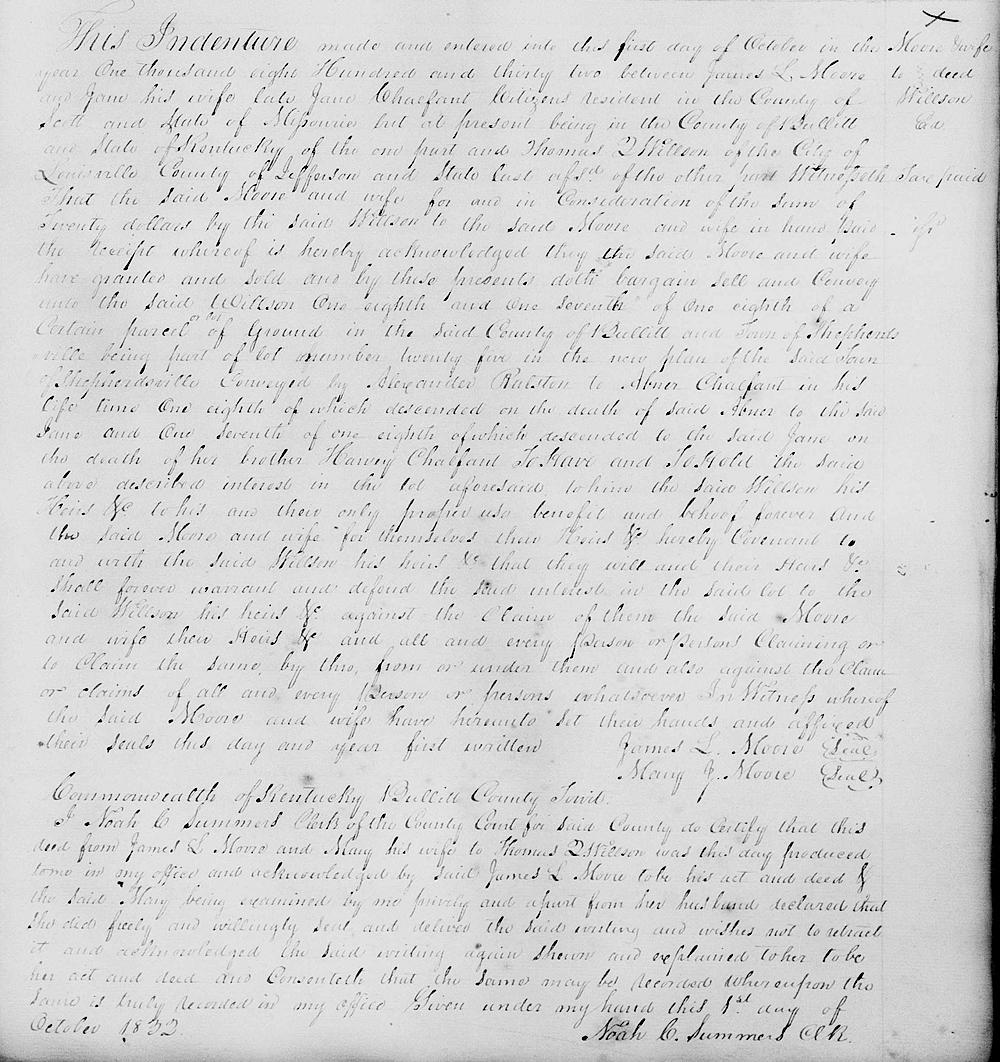 This Indenture made and entered into this first day of October in the
year One thousand eight Hundred and thirty two between James L. Moore
and Jane his wife late Jane Chalfant Citizens resident in the County of
Scott and State of Missourie but at present being in the County of Bullitt
and State of Kentucky of the one part and Thomas Q Willson of the City of
Louisville County of Jefferson and State last afsd. of the other part Witnesseth
That the said Moore and wife for and in Consideration of the sum of
Twenty dollars by the said Willson to the said Moore and wife in hand paid
the receipt whereof is hereby acknowledged they the said Moore and wife
have granted and sold and by these presents doth bargain sell and Convey
unto the said Willson One eighth and One seventh of One eighth of a
Certain parcel or lot of Ground in the said County of Bullitt and Town of Shepherds
ville being part of lot number twenty five in the new plan of the said Town
of Shepherdsville Conveyed by Alexander Ralston to Abner Chalfant in his
life time One eighth of which descended on the death of said Abner to the said
Jane and One seventh of one eighth of which descended to the said Jane on
the death of her brother Harvey Chalfant To Have and To Hold the said
above described interest in the lot aforesaid to him the said Willson his
Heirs &c to his and their only proper use benefit and behoof forever And
the said Moore and wife for themselves their Heirs &c hereby Covenant to
and with the said Willson his heirs &c that they will and their Heirs &c
shall forever warrant and defend the said interest in the said lot to the
said Willson his heirs &c against the Claim of them the said Moore
and wife their Heirs &c and all and every person or persons Claiming or
to Claim the same by thro, from or under them and also against the Claim
or claims of all and every person or persons whatsoever In Witness whereof
the said Moore and wife have hereunto set their hands and affixed
their seals this day and year first written James L. Moore (Seal)
Mary J. Moore (Seal)
Commonwealth of Kentucky Bullitt County Towit.
I Noah C Summers Clerk of the County Court for said County do Certify that this
deed from James L Moore and Mary his wife to Thomas Q Willson was this day produced
tome in my office and acknowledged by said James L Moore tobe his act and deed &
the said Mary being examined by me privily and apart from her husband declared that
she did freely and willingly seal and deliver the said writing and wishes not to retract
it and acknowledged the said writing again shewn and explained to her to be
her act and deed and Consenteth that the same may be recorded whereupon the
same is truly recorded in my office Given under my hand this 1st day of
October 1832. Noah C. Summers Clk.
Moore & wife
to deed
Willson
Exd
Tax paid